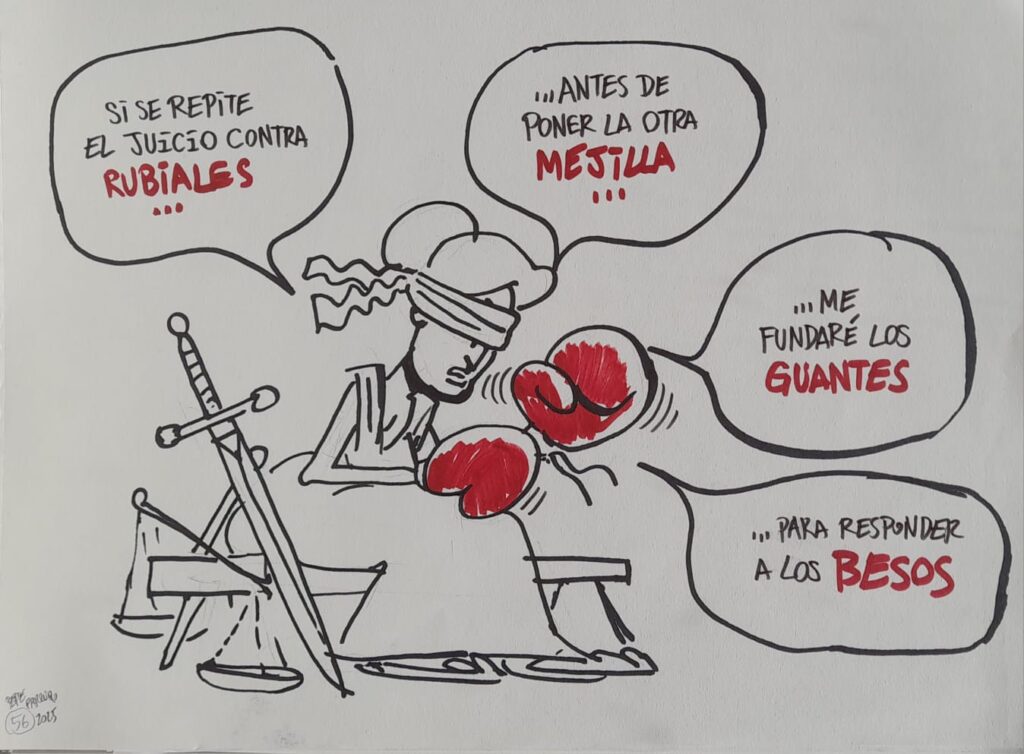 SI SE REPITE
EL JUICIO CONTRA
RUBIALES
...
...ANTES DE
PONER LA OTRA
MEJILLA
...
...ME
FUNDARÉ LOS
GUANTES
...PARA RESPONDER
A LOS BESOS
PEPE
56 2025